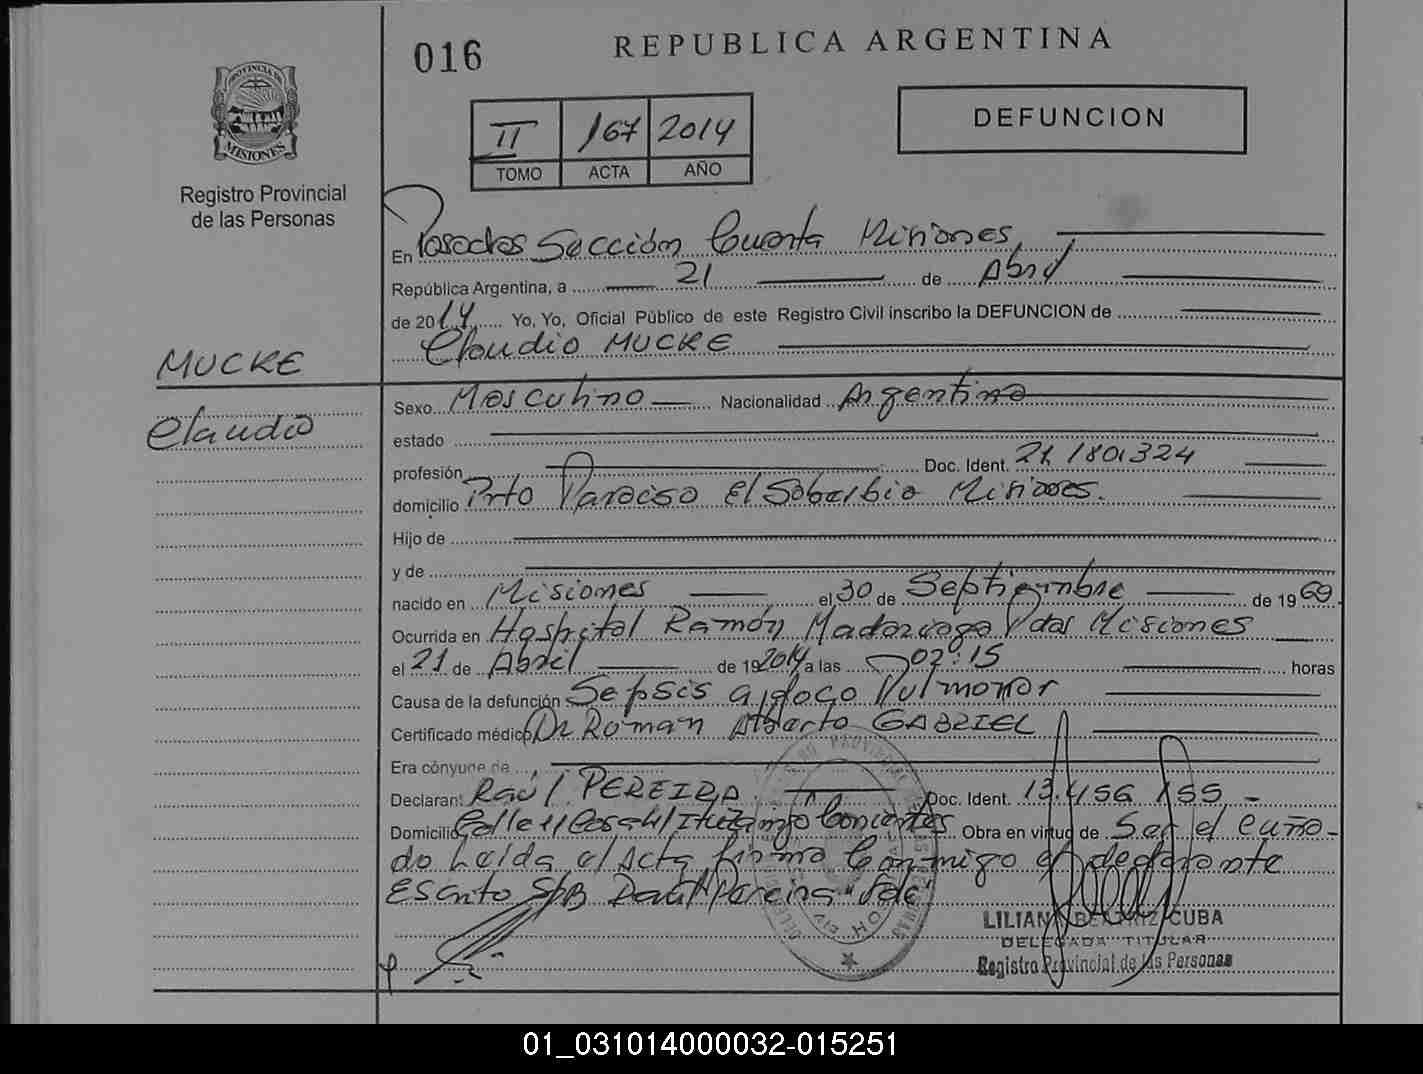 016
REPUBLICA ARGENTINA
PROVINCIA DE
MISIONES
Registro Provincial
de las Personas
II 167 2014
TOMO ACTA AÑO
DEFUNCION
En Posadas Sección Cuarta Misiones,
República Argentina, a 21 de Abril
de 2014 Yo, Yo, Oficial Público de este Registro Civil inscribo la DEFUNCION de
Claudio MUCKE
MUCKE
Claudio
Sexo Masculino Nacionalidad Argentina
estado
profesión Doc. Ident. 21.180.324
domicilio Pto Paraiso El Soberbio Misiones.
Hijo de
y de
nacido en Misiones el 30 de Septiembre de 1969
Ocurrida en Hospital Ramón Madariaga Pdas Misiones
el 21 de Abril de 192014 a las 02:15 horas
Causa de la defunción Sepsis a foco Pulmonar
Certificado médico Dr Roman Alberto GABRIEL
Era cónyuge de
Declarant Raúl PEREIRA Doc. Ident. 13.456.155 -
Domicilio Calle 11 Casa Ituzaingo Corrientes Obra en virtud de Ser el cuña-
do Leida el Acta firma Conmigo el declarante
Escrito S/B Raúl Pereira Vale
LILIANA BEATRIZ CUBA
DELEGADA TITULAR
Registro Provincial de las Personas
01_031014000032-015251